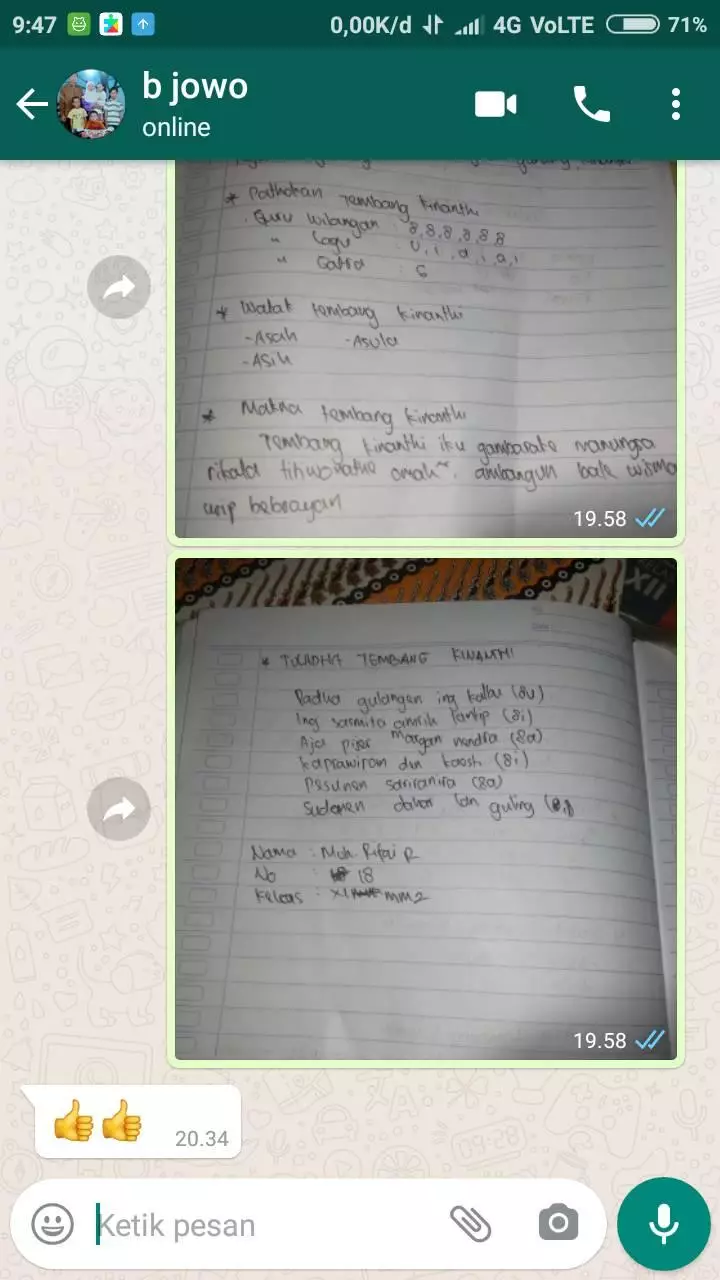 9:47 0,00K/d 4G VoLTE 71%
b jowo
online
* Pathokan Tembang Kinanthi
- Guru Wilangan : 8,8,8,8,8,8
" Lagu : U, i, a, i, a, i
" Gatra : 6
* Watak tembang kinanthi
-Asah -Asuh
-Asih
* Makna tembang kinanthi
Tembang kinanthi iku
urip bebrayan
19.58
XII
* TULADHA TEMBANG KINANTHI
Padha gulangen ing kalbu (8u)
Ing sasmita amrih lantip (8i)
Aja pijer mangan nendra (8a)
kaprawiran den kaesti (8i)
Pesunen sariranira (8a)
Sudanen dahar lan guling (8i)
Nama : Moh. Rifai R
No : 18
Kelas : XI MM2
19.58
20.34
Ketik pesan